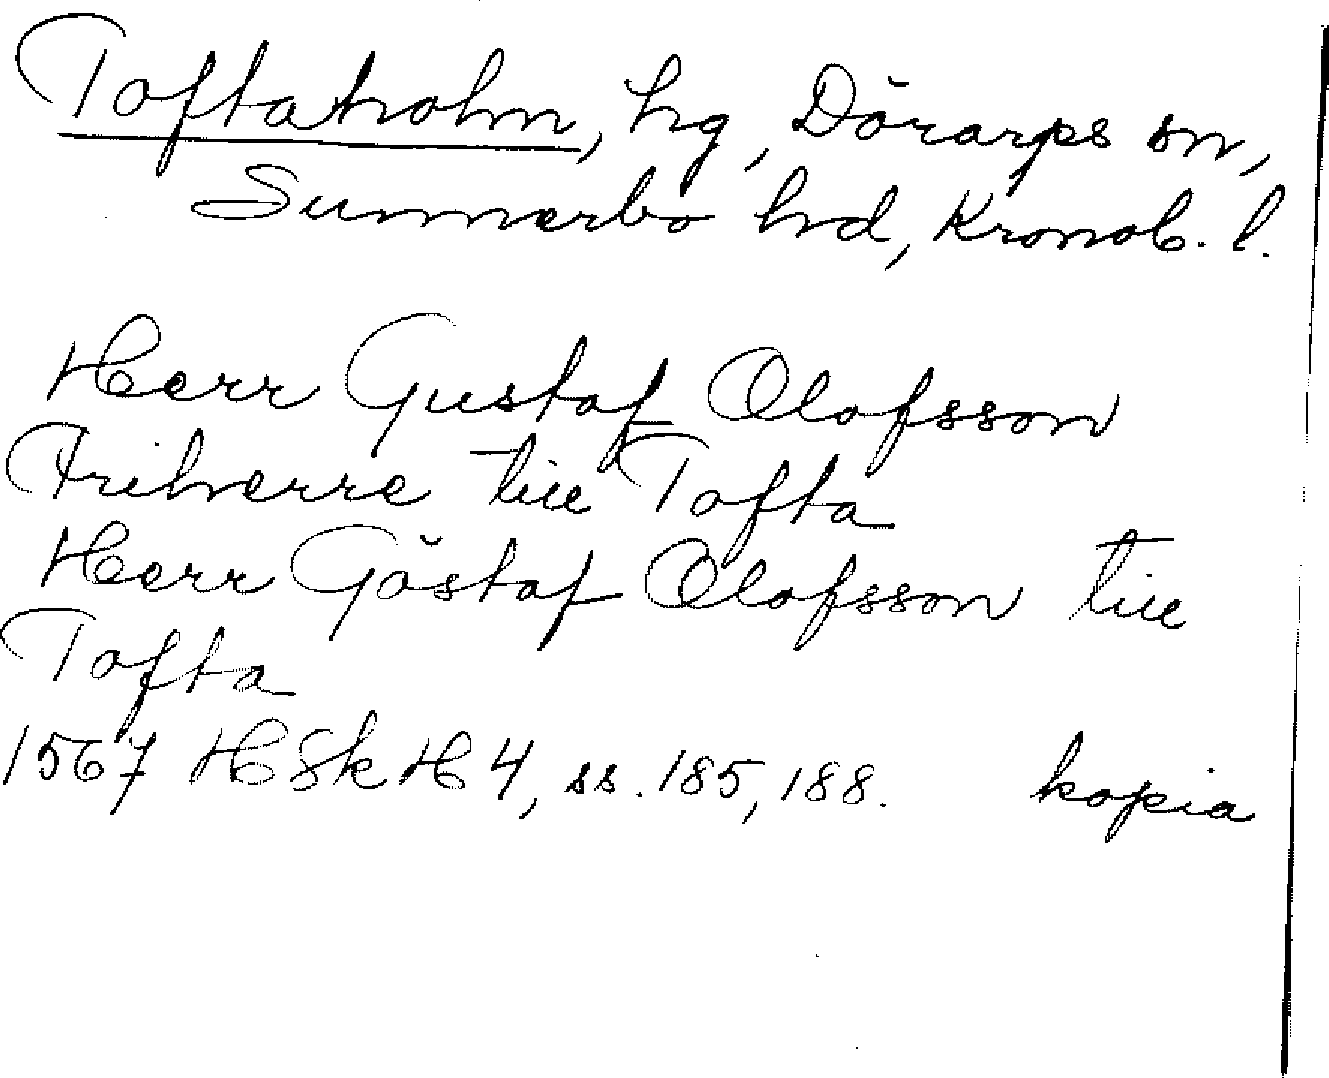 Toftaholm, hg, Dörarps sn,
Sunnerbo hd, Kronob. l.
Herr Gustaf Olofsson
Friherre till Tofta
Herr Göstaf Olofsson till
Tofta
1567 HSkH 4, ss. 185, 188. kopia